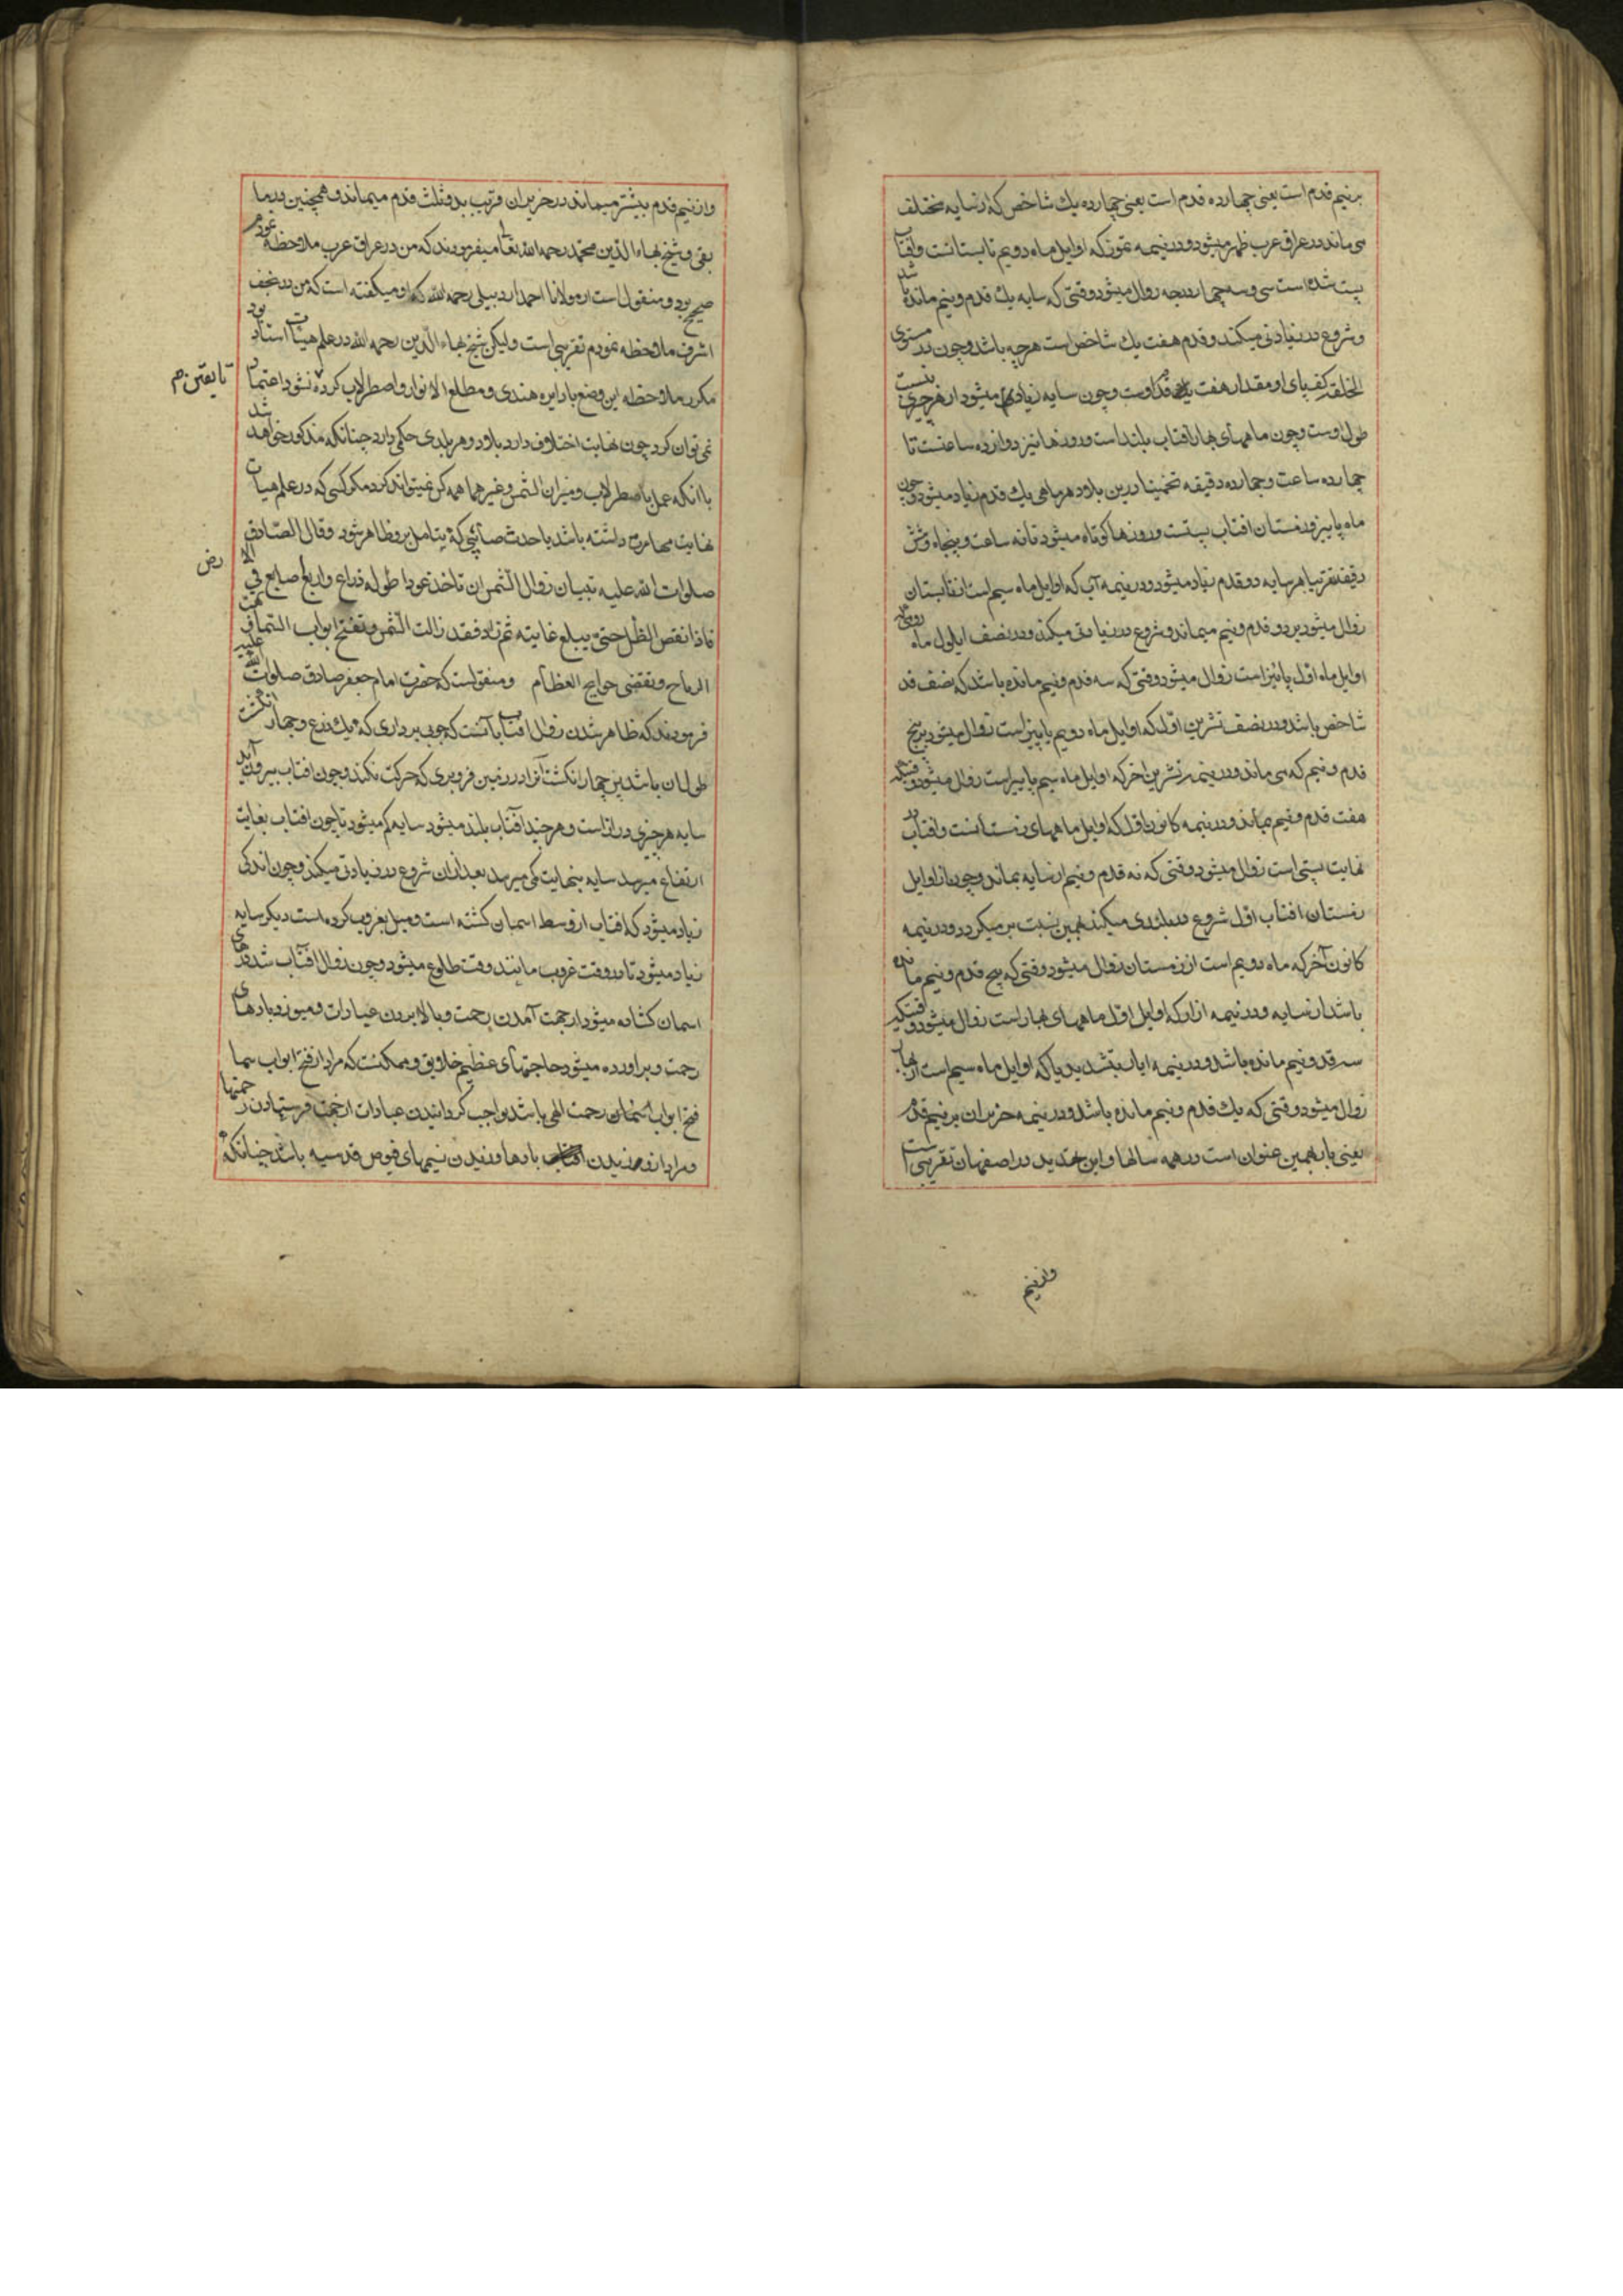 بر نیم قدم است یعنی چهارده قدم است یعنی چهارده یك شاخص که از سایه مختلف
می ماند در عراق عرب ظهر میشود و در نیمه تموز که اوایل ماه دویم تابستانست و افتاب
پست شده است سی و سه چهار درجه زوال میشود وقتی که سایه یك قدم و نیم مانده باشد
و شروع در زیادتی میکند و قدم هفت یك شاخص است هرچه باشد و چون در مستوی
الخلقه کف پای او مقدار هفت یك قد اوست و چون سایه زیاده میشود از هر چیزی
طول اوست و چون ماههای بهار افتاب بلند است و روزها نیز دوازده ساعتست تا
چهارده ساعت و چهارده دقیقه تخمینا درین بلاد هر ماهی یك قدم زیاد میشود و چون
ماه پاییز و زمستان افتاب پستست و روزها کوتاه میشود تا نه ساعت و پنجاه و شش
دقیقه تقریبا هر سایه دو قدم زیاد میشود و در نیمه آب که اوایل ماه سیم است از تابستان
زوال میشود بر دو قدم و نیم میماند و شروع در زیادتی میکند و در نصف ایلول ماه رومی که
اوایل ماه اول پائیز است زوال میشود وقتی که سه قدم و نیم مانده باشد که نصف قد
شاخص باشد و در نصف تشرین اول که اوایل ماه دویم پاییز است زوال میشود بر پنج
قدم و نیم که می ماند و در نیمه تشرین اخر که اوایل ماه سیم پاییز است زوال میشود وقتیکه
هفت قدم و نیم بماند و در نیمه کانون اول که اوایل ماههای زمستانست و افتاب در
نهایت پستی است زوال میشود وقتی که نه قدم و نیم از سایه بماند و چون از اوایل
زمستان افتاب اول شروع در بلندی میکند بهمین نسبت بر میکردد و در نیمه
کانون آخر که ماه دویم است از زمستان زوال میشود وقتی که پنج قدم و نیم مانده
باشد از سایه و در نیمه اذار که اوایل اول ماههای بهار است زوال میشود وقتیکه
سه قدم و نیم مانده باشد و در نیمه ایار بتشدید یا که اوایل ماه سیم است از بهار
زوال میشود وقتی که یك قدم و نیم مانده باشد و در نیمه حزیران بر نیم قدم
یعنی باز بهمین عنوان است در همه سالها و این تحدید در اصفهان تقریبی است
و از نیم
و از نیم قدم بیشتر میماند در حزیران قریب بدو ثلث قدم میماند و همچنین در ما
بقی و شیخ بهاء الدین محمد رحمه الله تعالی میفرمودند که من در عراق عرب ملاحظه نمودم
صحیح بود و منقول است از مولانا احمد اردبیلی رحمه الله که او میکفته است که من در نجف
اشرف ملاحظه نمودم تقریبی است ولیکن شیخ بهاء الدین رحمه الله در علم هیئات استاد بود
مکرر ملاحظه این وضع با دایره هندی و مطلع الانوار و اصطرلاب کرده نشود اعتماد
تا یقین م
نمی توان کرد چون نهایت اختلاف دارد بلاد و هر بلدی حکمی دارد چنانکه مذکور خواهد شد
با انکه عمل باصطرلاب و میزان الشمس و غیرهما همه کس نمیتواند کرد مکر کسی که در علم هیات
نهایت مهارت داشته باشد با حدث صائبی که بتامل برو ظاهر شود و قال الصادق
رض
صلوات الله علیه تبیان زوال الشمس ان تاخذ عودا طوله ذراع و اربع اصابع فی
فاذا نقص الظل حتی یبلغ غایته ثم زاد فقد زالت الشمس و تفتح ابواب السماء و تهب
الریاح و تقضی حوایج العظام و منقولست که حضرت امام جعفر صادق صلوات الله علیه
فرمودند که ظاهر شدن زوال افتاب بآنست که چوبی برداری که یك ذرع و چهار انکشت
طول ان باشد پس چهار انکشت آنرا در زمین فرو بری که حرکت نکند و چون افتاب بیرون آید
سایه هر چیزی دراز است و هر چند آفتاب بلند میشود سایه کم میشود تا چون افتاب بغایت
ارتفاع میرسد سایه بنهایت کمی میرسد بعد از ان شروع در زیادتی میکند و چون اندکی
زیاد میشود که افتاب از وسط اسمان کشته است و میل بغروب کرده است دیکر سایه
زیاد میشود تا در وقت غروب مانند وقت طلوع میشود و چون زوال افتاب شد درهای
اسمان کشاده میشود از جهت آمدن رحمت و بالا بردن عبادات و میوزد بادهای
رحمت و براورده میشود حاجتهای عظیم خلایق و ممکنست که مراد از فتح ابواب سما
فتح ابواب اسمان رحمت الهی باشد بواجب کردانیدن عبادات از جهت فرستادن رحمتها
و مراد از وزیدن بادها وزیدن نسیمهای فیوض قدسیه باشد چنانکه